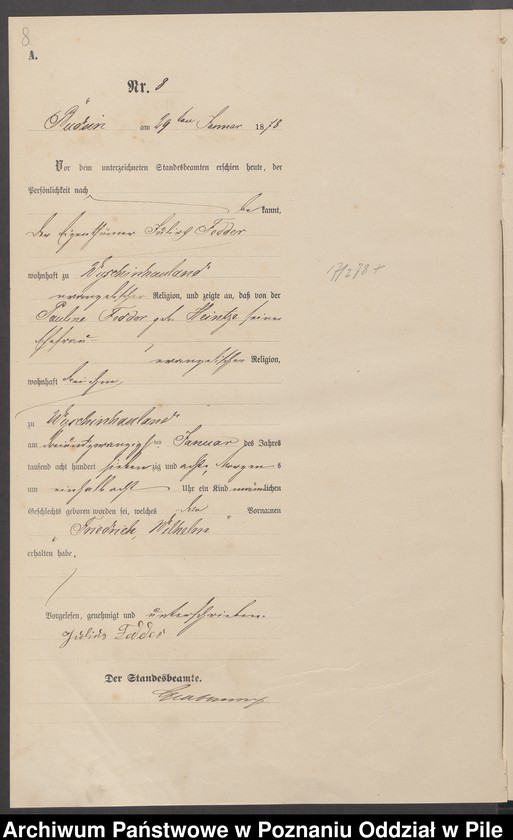 8
A.
Nr. 8
am 29ten Januar 1878
Vor dem unterzeichneten Standesbeamten erschien heute, der
Persönlichkeit nach
be kannt,
der Eigenthümer Julius Feddor
wohnhaft zu
evangelischer Religion, und zeigte an, daß von der
Pauline Feddor geb. Heintze seiner
Ehefrau
evangelischer Religion,
wohnhaft bei ihm
zu
am dreiundzwanzigsten Januar des Jahres
tausend acht hundert siebenzig und acht, Morgens
um einhalb acht Uhr ein Kind männlichen
Geschlechts geboren worden sei, welches die Vornamen
Friedrich, Wilhelm
erhalten habe.
Vorgelesen, genehmigt und unterschrieben.
Julius Feddor
Der Standesbeamte.
Archiwum Państwowe w Poznaniu Oddział w Pile